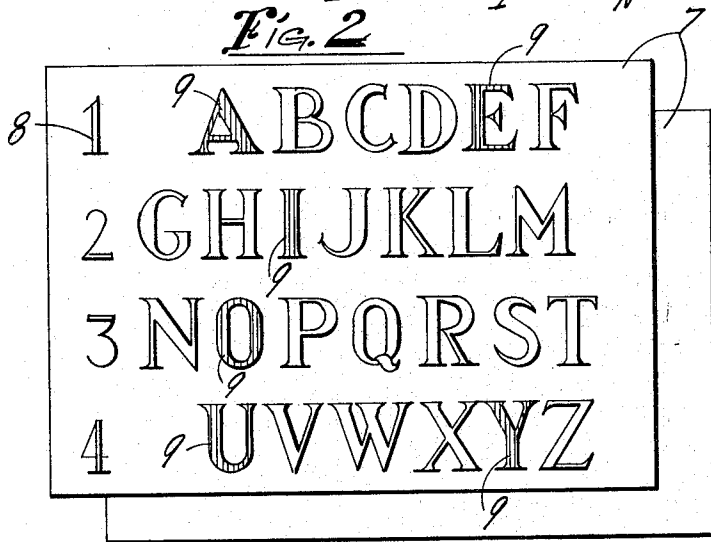 Fig. 2
9
7
8 1 9 A B C D E F
2 G H I J K L M
9
3 N O P Q R S T
9
4 9 U V W X Y Z
9